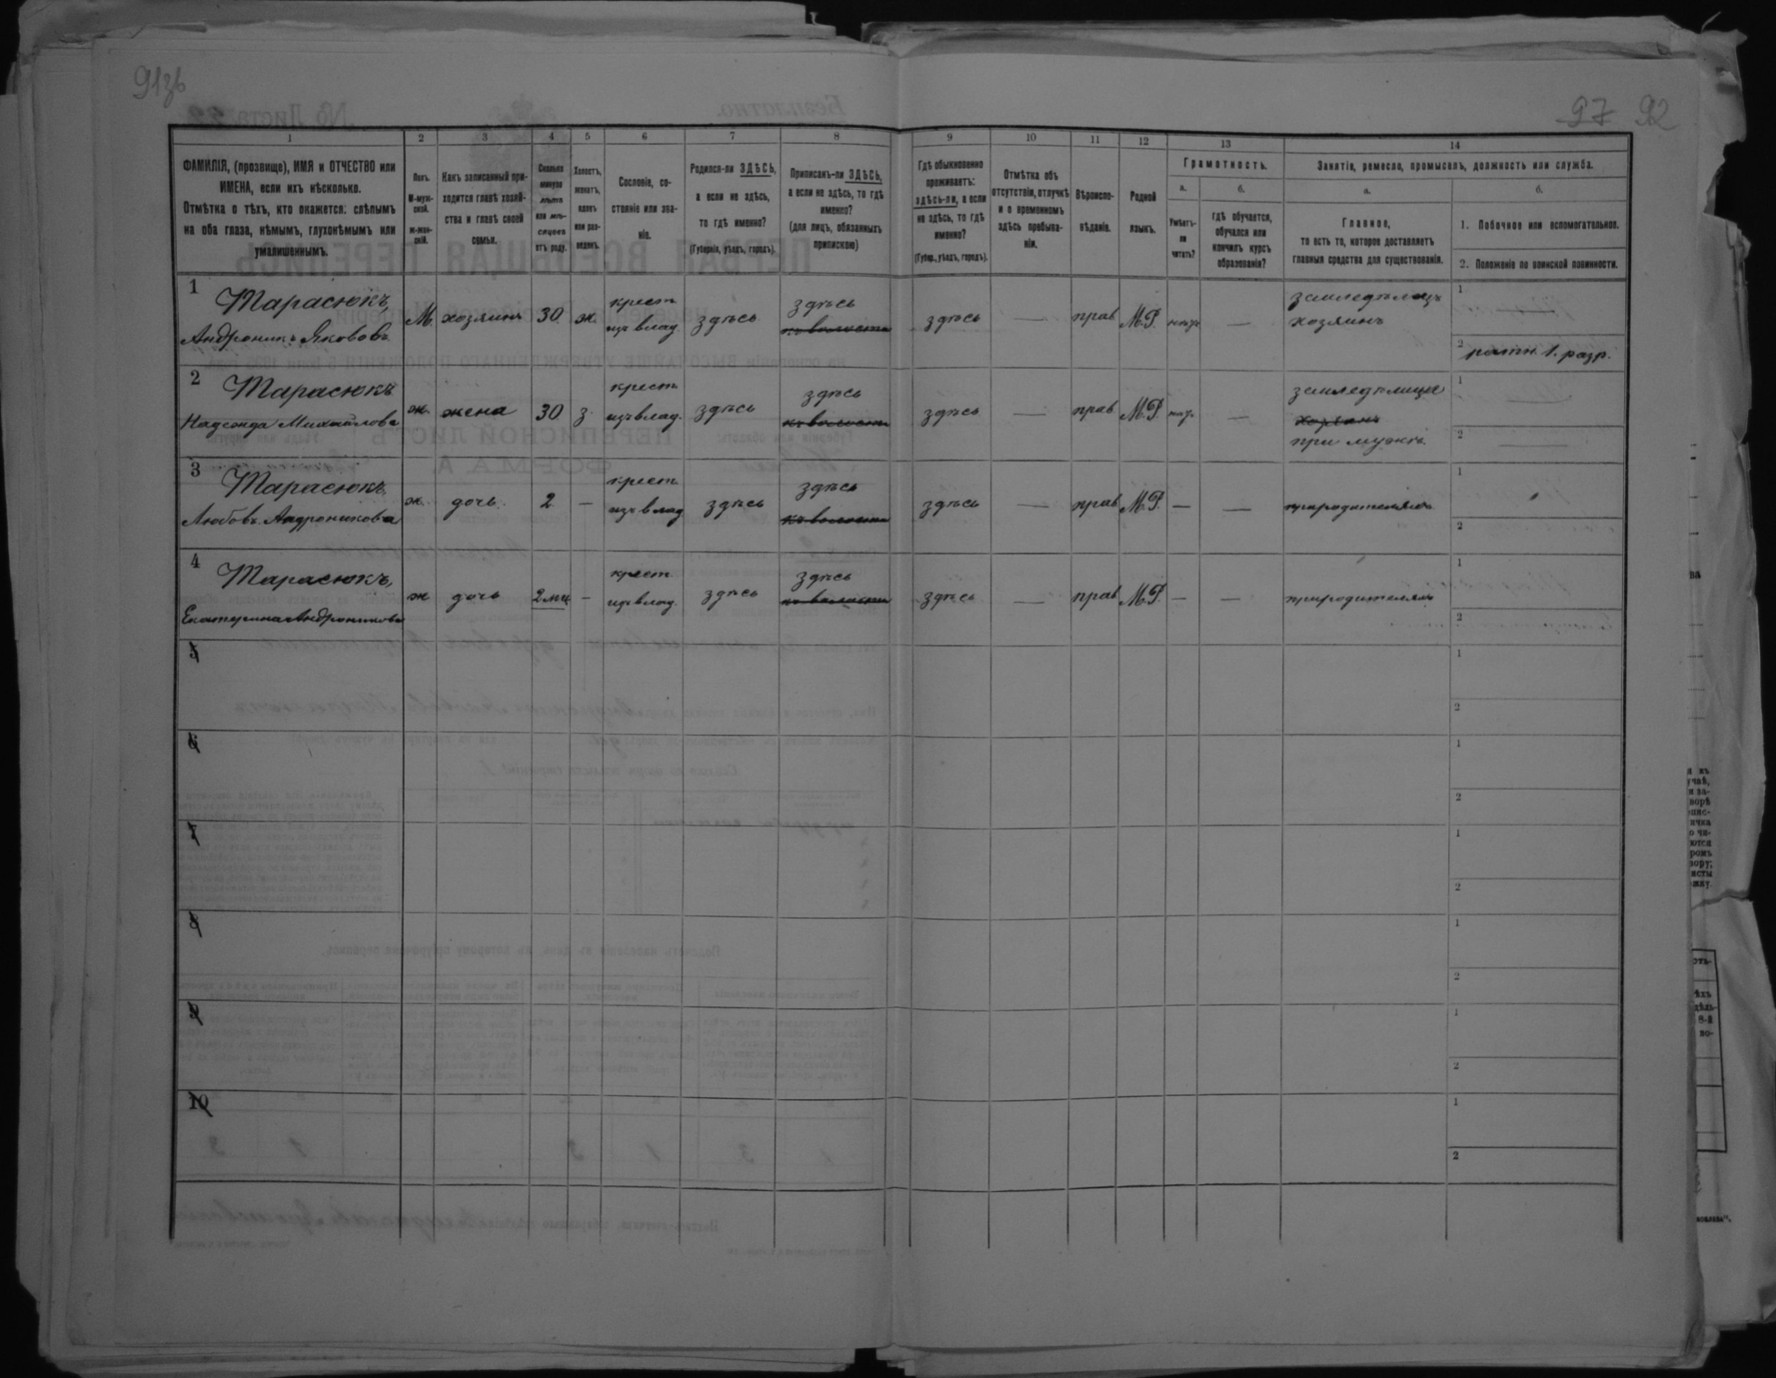 91об
97 92
1
2
3
4
5
6
7
8
9
10
11
12
13
14
ФАМИЛІЯ, (прозвище), ИМЯ и ОТЧЕСТВО или
ИМЕНА, если ихъ нѣсколько.
Отмѣтка о тѣхъ, кто окажется: слѣпымъ
на оба глаза, нѣмымъ, глухонѣмымъ или
умалишеннымъ.
Полъ.
М-муж-
ской.
ж-жен-
скій.
Какъ записанный при-
ходится главѣ хозяй-
ства и главѣ своей
семьи.
Сколько
минуло
лѣтъ
или мѣ-
сяцевъ
отъ роду.
Холостъ,
женатъ,
вдовъ
или раз-
веденъ.
Сословіе, со-
стояніе или зва-
ніе.
Родился-ли ЗДѢСЬ,
а если не здѣсь,
то гдѣ именно?
(Губернія, уѣздъ, городъ).
Приписанъ-ли ЗДѢСЬ,
а если не здѣсь, то гдѣ
именно?
(для лицъ, обязанныхъ
припискою)
Гдѣ обыкновенно
проживаетъ:
здѣсь-ли, а если
не здѣсь, то гдѣ
именно?
(Губер., уѣздъ, городъ).
Отмѣтка объ
отсутствіи, отлучкѣ
и о временномъ
здѣсь пребыва-
ніи.
Вѣроиспо-
вѣданіе.
Родной
языкъ.
Грамотность.
а.
Умѣетъ-
ли
читать?
б.
гдѣ обучается,
обучался или
кончилъ курсъ
образованія?
Занятіе, ремесло, промыселъ, должность или служба.
а.
Главное,
то есть то, которое доставляетъ
главныя средства для существованія.
б.
1. Побочное или вспомогательное.
2. Положеніе по воинской повинности.
1 Тарасюкъ
Андроникъ Яковъ М. хозяинъ 30 ж. крест. изъ влад. здѣсь здѣсь къ волости здѣсь — прав М.Р. нѣтъ — земледѣлецъ хозяинъ 1
2 ратн. 1. разр.
2 Тарасюкъ
Михайлова ж. жена 30 з. крест. изъ влад. здѣсь здѣсь къ волости здѣсь — прав М.Р. нѣтъ — хозяинъ при мужѣ 1 —
2 —
3 Тарасюкъ
Любовь Андроникова ж. дочь 2 — крест. изъ влад здѣсь здѣсь къ волости здѣсь — прав М.Р. — — при родителяхъ 1
2
4 Тарасюкъ
Екатерина Андроникова ж дочь 2 мц — крест. изъ влад. здѣсь здѣсь къ волости здѣсь — прав М.Р. — — при родителяхъ 1
2
5 1
2
6 1
2
7 1
2
8 1
2
9 1
2
10 1
2